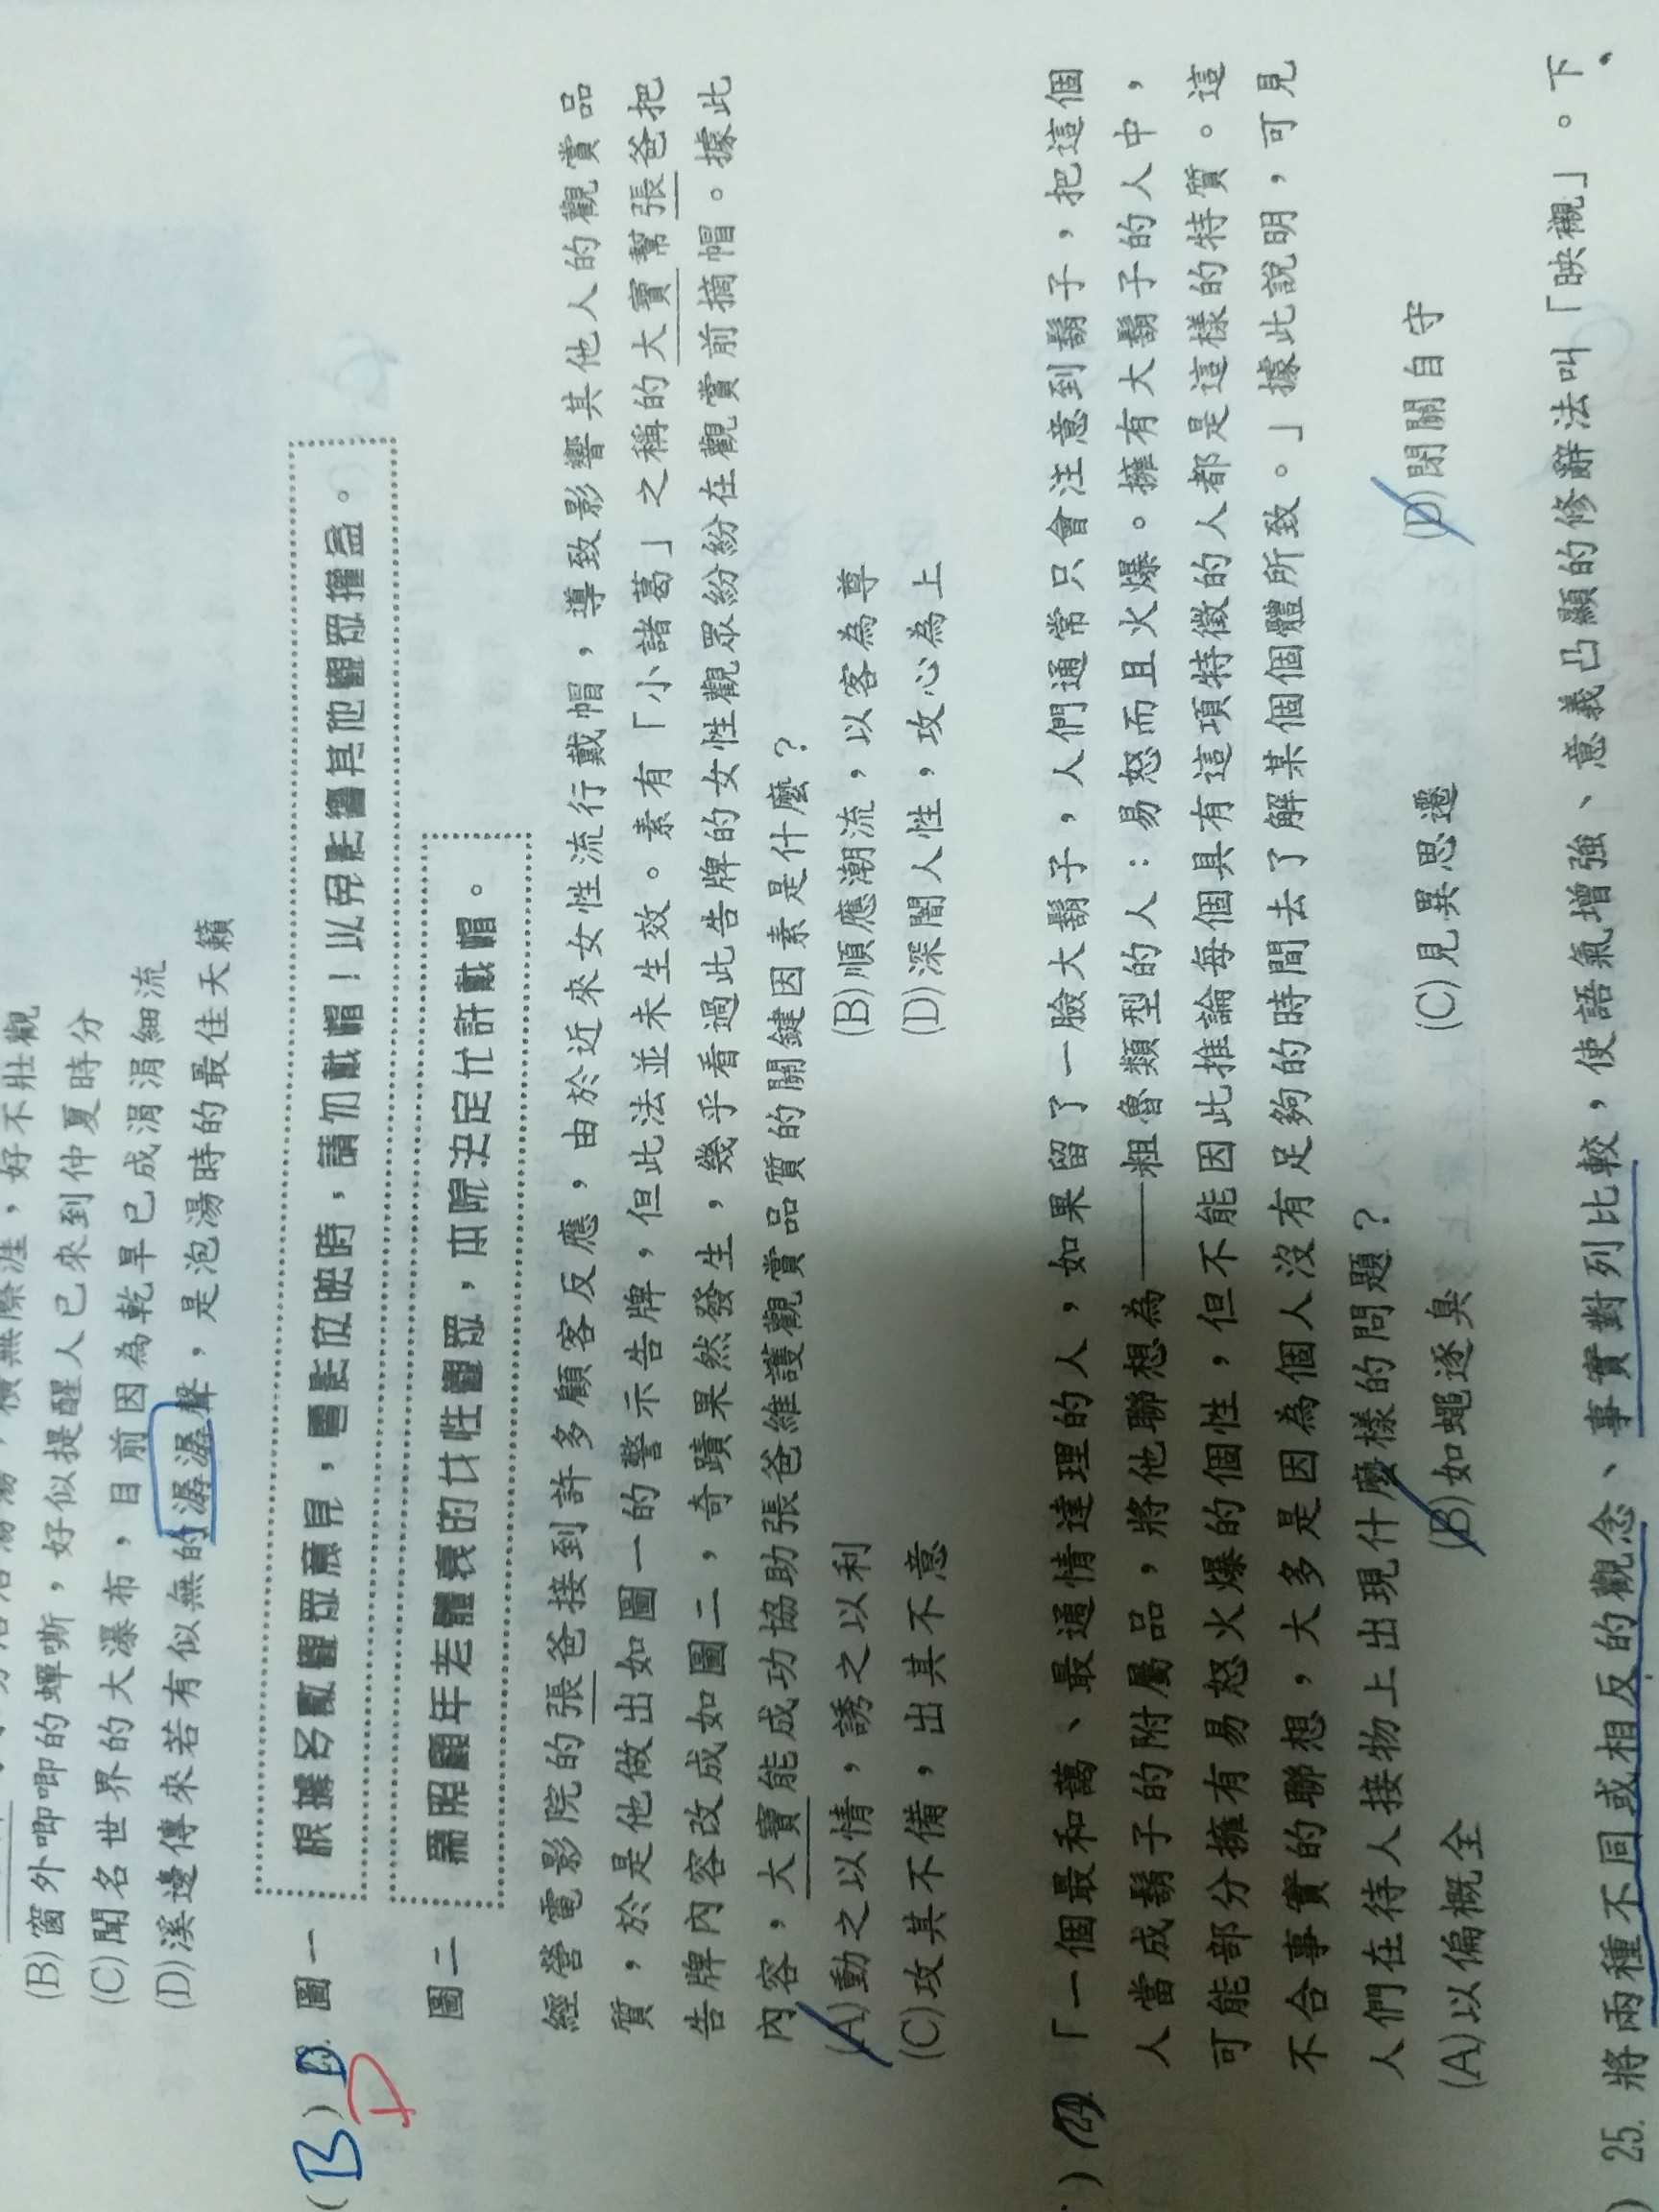 (B)窗外唧唧的蟬嘶，好似提醒人已來到仲夏時分
(C)聞名世界的大瀑布，目前因為乾旱已成涓涓細流
(D)溪邊傳來若有似無的潺潺聲，是泡湯時的最佳天籟
(B) 23. 圖一 根據多數觀眾意見，電影放映時，請勿戴帽！以免影響其他觀眾權益。
D
圖二 需照顧年老體衰的女性觀眾，本院決定允許戴帽。
經營電影院的張爸接到許多顧客反應，由於近來女性流行戴帽，導致影響其他人的觀賞品
質，於是他做出如圖一的警示告牌，但此法並未生效。素有「小諸葛」之稱的大寶幫張爸把
告牌內容改成如圖二，奇蹟果然發生，幾乎看過此告牌的女性觀眾紛紛在觀賞前摘帽。據此
內容，大寶能成功協助張爸維護觀賞品質的關鍵因素是什麼？
(A)動之以情，誘之以利 (B)順應潮流，以客為尊
(C)攻其不備，出其不意 (D)深闇人性，攻心為上
) 24. 「一個最和藹、最通情達理的人，如果留了一臉大鬍子，人們通常只會注意到鬍子，把這個
人當成鬍子的附屬品，將他聯想為——粗魯類型的人：易怒而且火爆。擁有大鬍子的人中，
可能部分擁有易怒火爆的個性，但不能因此推論每個具有這項特徵的人都是這樣的特質。這
不合事實的聯想，大多是因為個人沒有足夠的時間去了解某個個體所致。」據此說明，可見
人們在待人接物上出現什麼樣的問題？
(A)以偏概全 (B)如蠅逐臭 (C)見異思遷 (D)閉關自守
) 25. 將兩種不同或相反的觀念、事實對列比較，使語氣增強、意義凸顯的修辭法叫「映襯」。下